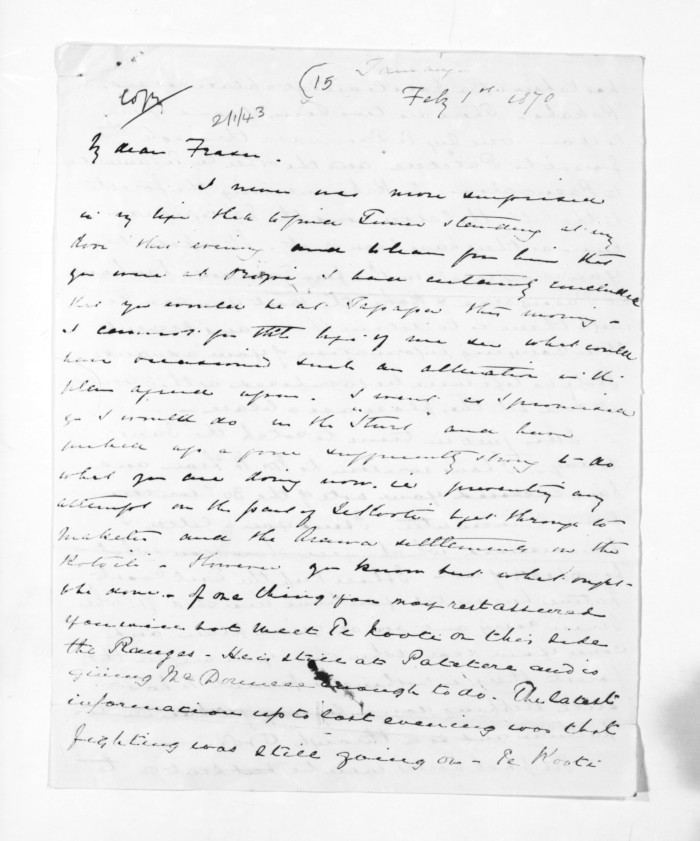 Tauranga
(15
Feby 1st 1870
Copy
2/1/43
My dear Fraser.
I never was more surprised
in my life than to find Turner standing at my
door this evening and to learn from him that
you were at I have certainly concluded
that you would be at Tapapa this morning -
I cannot for the life of me see what could
have occasioned such an alteration in the
plan agreed upon. I went as I promised
you I would do in the "Sturt" and have
picked up a force sufficiently strong to do
what you are doing now. ie preventing any
attempt on the part of Te Kooti to get through to
Maketu and the Arawa settlements on the
Rotoiti - However you know best what ought
to be done. Of one thing you may rest assured
you will not meet Te Kooti on this side
the Ranges - He is still at Patetere and is
giving McDonnell enough to do. The latest
information up to last evening was that
fighting was still going on - Te Kooti